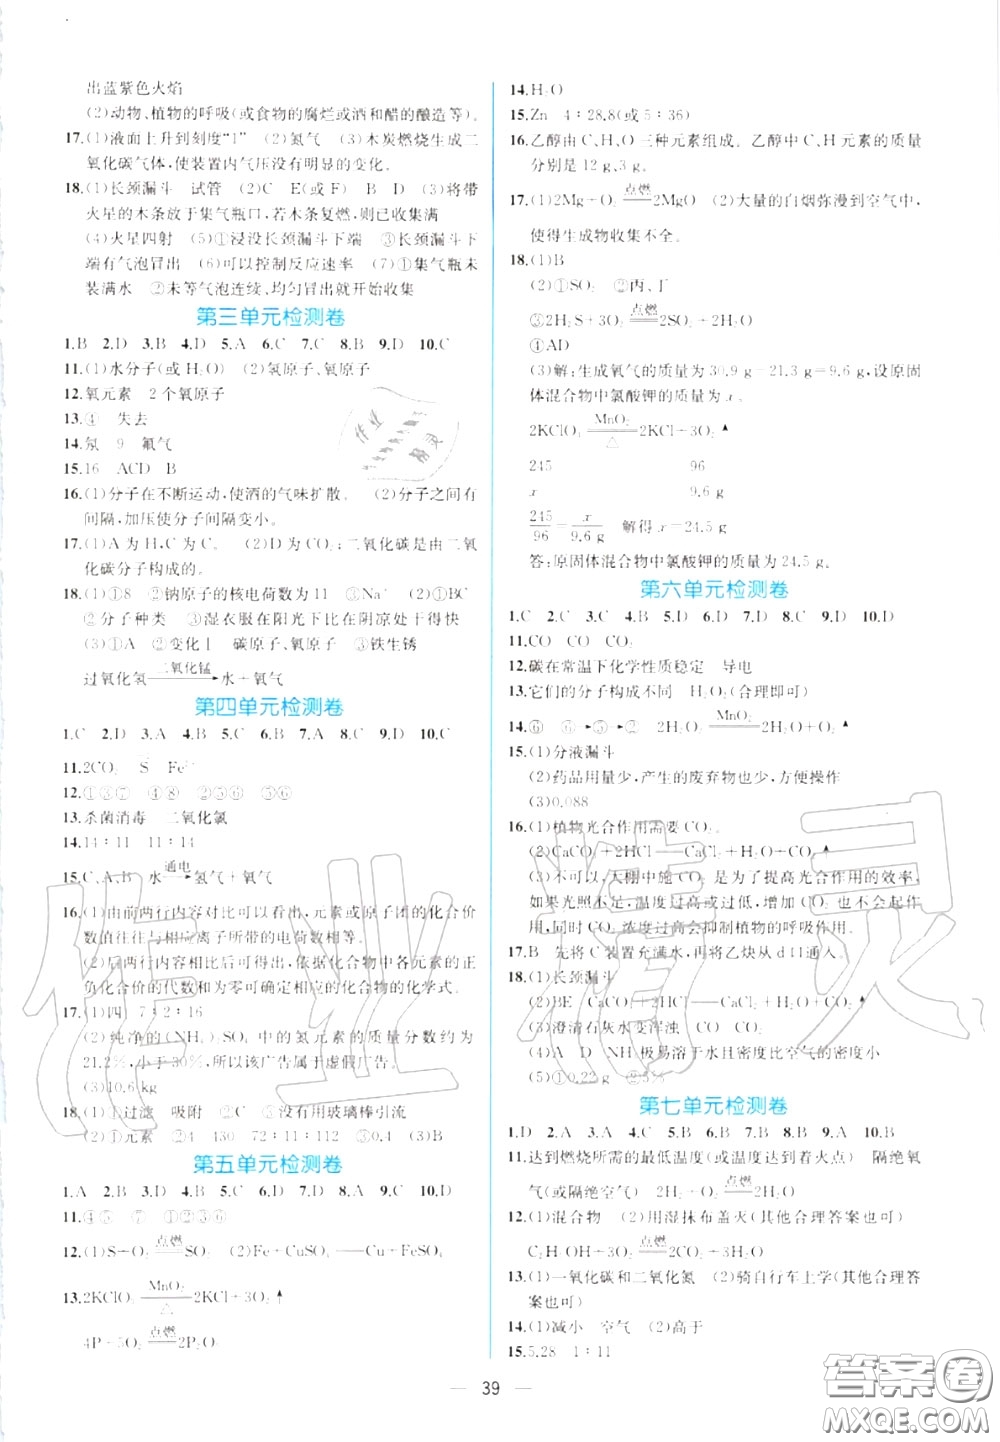 出蓝紫色火焰
(2)动物、植物的呼吸(或食物的腐烂或酒和醋的酿造等)。
17.(1)液面上升到刻度“1” (2)氮气 (3)木炭燃烧生成二
氧化碳气体,使装置内气压没有明显的变化。
18.(1)长颈漏斗 试管 (2)C E(或F) B D (3)将带
火星的木条放于集气瓶口,若木条复燃,则已收集满
(4)火星四射 (5)①浸没长颈漏斗下端 ③长颈漏斗下
端有气泡冒出 (6)可以控制反应速率 (7)①集气瓶未
装满水 ②未等气泡连续、均匀冒出就开始收集
第三单元检测卷
1.B 2.D 3.B 4.D 5.A 6.C 7.C 8.B 9.D 10.C
11.(1)水分子(或H₂O) (2)氢原子、氧原子
12.氧元素 2个氧原子
13.④ 失去
14.氖 9 氟气
15.16 ACD B
16.(1)分子在不断运动,使酒的气味扩散。 (2)分子之间有
间隔,加压使分子间隔变小。
17.(1)A为H,C为C。 (2)D为CO₂;二氧化碳是由二氧
化碳分子构成的。
18.(1)①8 ②钠原子的核电荷数为11 ③Na⁺ (2)①BC
②分子种类 ③湿衣服在阳光下比在阴凉处干得快
(3)①A ②变化Ⅰ 碳原子、氧原子 ③铁生锈
过氧化氢 二氧化锰→ 水+氧气
第四单元检测卷
1.C 2.D 3.A 4.B 5.C 6.C 7.A 8.C 9.D 10.C
11.2CO₂ S Fe
12.①③⑦ ④⑧ ②⑤⑥
13.杀菌消毒 二氧化氯
14.14∶11 11∶14
15.C、A、B 水 通电→ 氢气+氧气
16.(1)由前两行内容对比可以看出,元素或原子团的化合价
数值往往与相应离子所带的电荷数相等。
(2)后两行内容相比后可得出,依据化合物中各元素的正
负化合价的代数和为零可确定相应的化合物的化学式。
17.(1)四 7∶2∶16
(2)纯净的(NH₄)₂SO₄中的氮元素的质量分数约为
21.2%,小于30%,所以该广告属于虚假广告。
(3)10.6 kg
18.(1)①过滤 吸附 ②C ③没有用玻璃棒引流
(2)①元素 ②4 430 72∶11∶112 ③0.4 (3)B
第五单元检测卷
1.A 2.B 3.D 4.D 5.C 6.D 7.D 8.A 9.C 10.D
11.④③⑥ ⑦ ①②③⑥
12.(1)S+O₂ 点燃 SO₂ (2)Fe+CuSO₄ — Cu+FeSO₄
13.2KClO₃ MnO₂ △ 2KCl+3O₂↑
4P+5O₂ 点燃 2P₂O₅
14.H₂O
15.Zn 4∶28.8(或5∶36)
16.乙醇由C、H、O三种元素组成。乙醇中C、H元素的质量
分别是12 g、3 g。
17.(1)2Mg+O₂ 点燃 2MgO (2)大量的白烟弥漫到空气中,
使得生成物收集不全。
18.(1)B
(2)①SO₂ ②丙、丁
③2H₂S+3O₂ 点燃 2SO₂+2H₂O
④AD
(3)解:生成氧气的质量为30.9 g-21.3 g=9.6 g,设原固
体混合物中氯酸钾的质量为x。
2KClO₃ MnO₂ △ 2KCl+3O₂↑
245 96
x 9.6 g
245/96=x/9.6 g 解得x=24.5 g
答:原固体混合物中氯酸钾的质量为24.5 g。
第六单元检测卷
1.C 2.C 3.C 4.B 5.D 6.D 7.D 8.C 9.D 10.D
11.CO CO CO₂
12.碳在常温下化学性质稳定 导电
13.它们的分子构成不同 H₂O₂(合理即可)
14.⑥ ⑥→⑤→② 2H₂O₂ MnO₂ 2H₂O+O₂↑
15.(1)分液漏斗
(2)药品用量少,产生的废弃物也少,方便操作
(3)0.088
16.(1)植物光合作用需要CO₂。
(2)CaCO₃+2HCl — CaCl₂+H₂O+CO₂↑
(3)不可以,大棚中施CO₂是为了提高光合作用的效率,
如果光照不足,温度过高或过低,增加CO₂也不会起作
用,同时CO₂浓度过高会抑制植物的呼吸作用。
17.B 先将C装置充满水,再将乙炔从d口通入。
18.(1)长颈漏斗
(2)BE CaCO₃+2HCl — CaCl₂+H₂O+CO₂↑
(3)澄清石灰水变浑浊 CO CO₂
(4)A D NH₃极易溶于水且密度比空气的密度小
(5)①0.22 g ②5%
第七单元检测卷
1.D 2.A 3.A 4.C 5.B 6.D 7.B 8.B 9.A 10.B
11.达到燃烧所需的最低温度(或温度达到着火点) 隔绝氧
气(或隔绝空气) 2H₂+O₂ 点燃 2H₂O
12.(1)混合物 (2)用湿抹布盖灭(其他合理答案也可)
C₂H₅OH+3O₂ 点燃 2CO₂+3H₂O
13.(1)一氧化碳和二氧化氮 (2)骑自行车上学(其他合理答
案也可)
14.(1)减小 空气 (2)高于
15.5.28 1∶11
39
作业精灵
作业精灵
答案圈
MXQE.COM